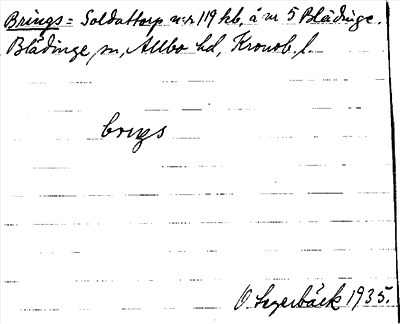 Brings = Soldattorp n:r 119 hb, å nr 5 Blädinge.
Blädinge, sn, Allbo hd, Kronob, l.
brıŋs
O Lagerbäck 1935.